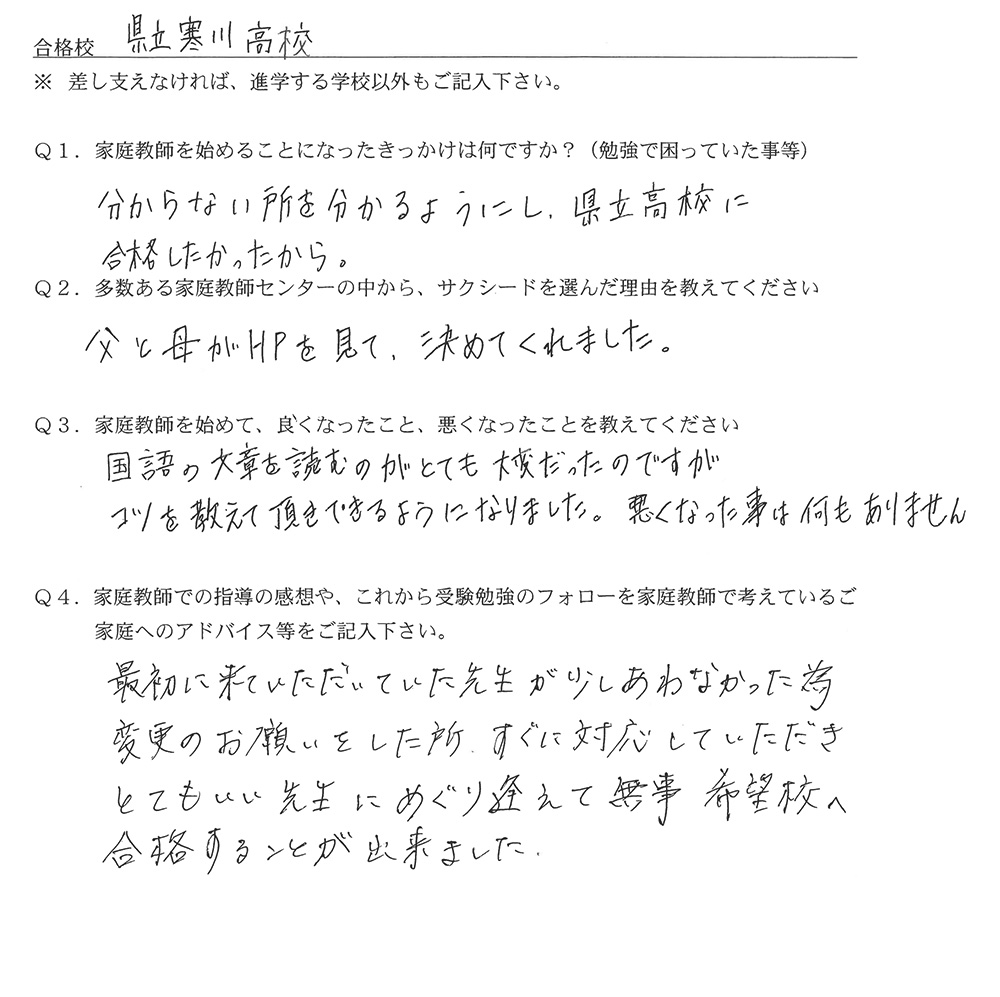 合格校 県立寒川高校
※ 差し支えなければ、進学する学校以外もご記入下さい。
Q1．家庭教師を始めることになったきっかけは何ですか？（勉強で困っていた事等）
分からない所を分かるようにし、県立高校に
合格したかったから。
Q2．多数ある家庭教師センターの中から、サクシードを選んだ理由を教えてください
父と母がHPを見て、決めてくれました。
Q3．家庭教師を始めて、良くなったこと、悪くなったことを教えてください
国語の文章を読むのがとても大変だったのですが
コツを教えて頂きできるようになりました。悪くなった事は何もありません
Q4．家庭教師での指導の感想や、これから受験勉強のフォローを家庭教師で考えているご
家庭へのアドバイス等をご記入下さい。
最初に来ていただいていた先生が少しあわなかった為
変更のお願いをした所、すぐに対応していただき
とてもいい先生にめぐり逢えて無事 希望校へ
合格することが出来ました.